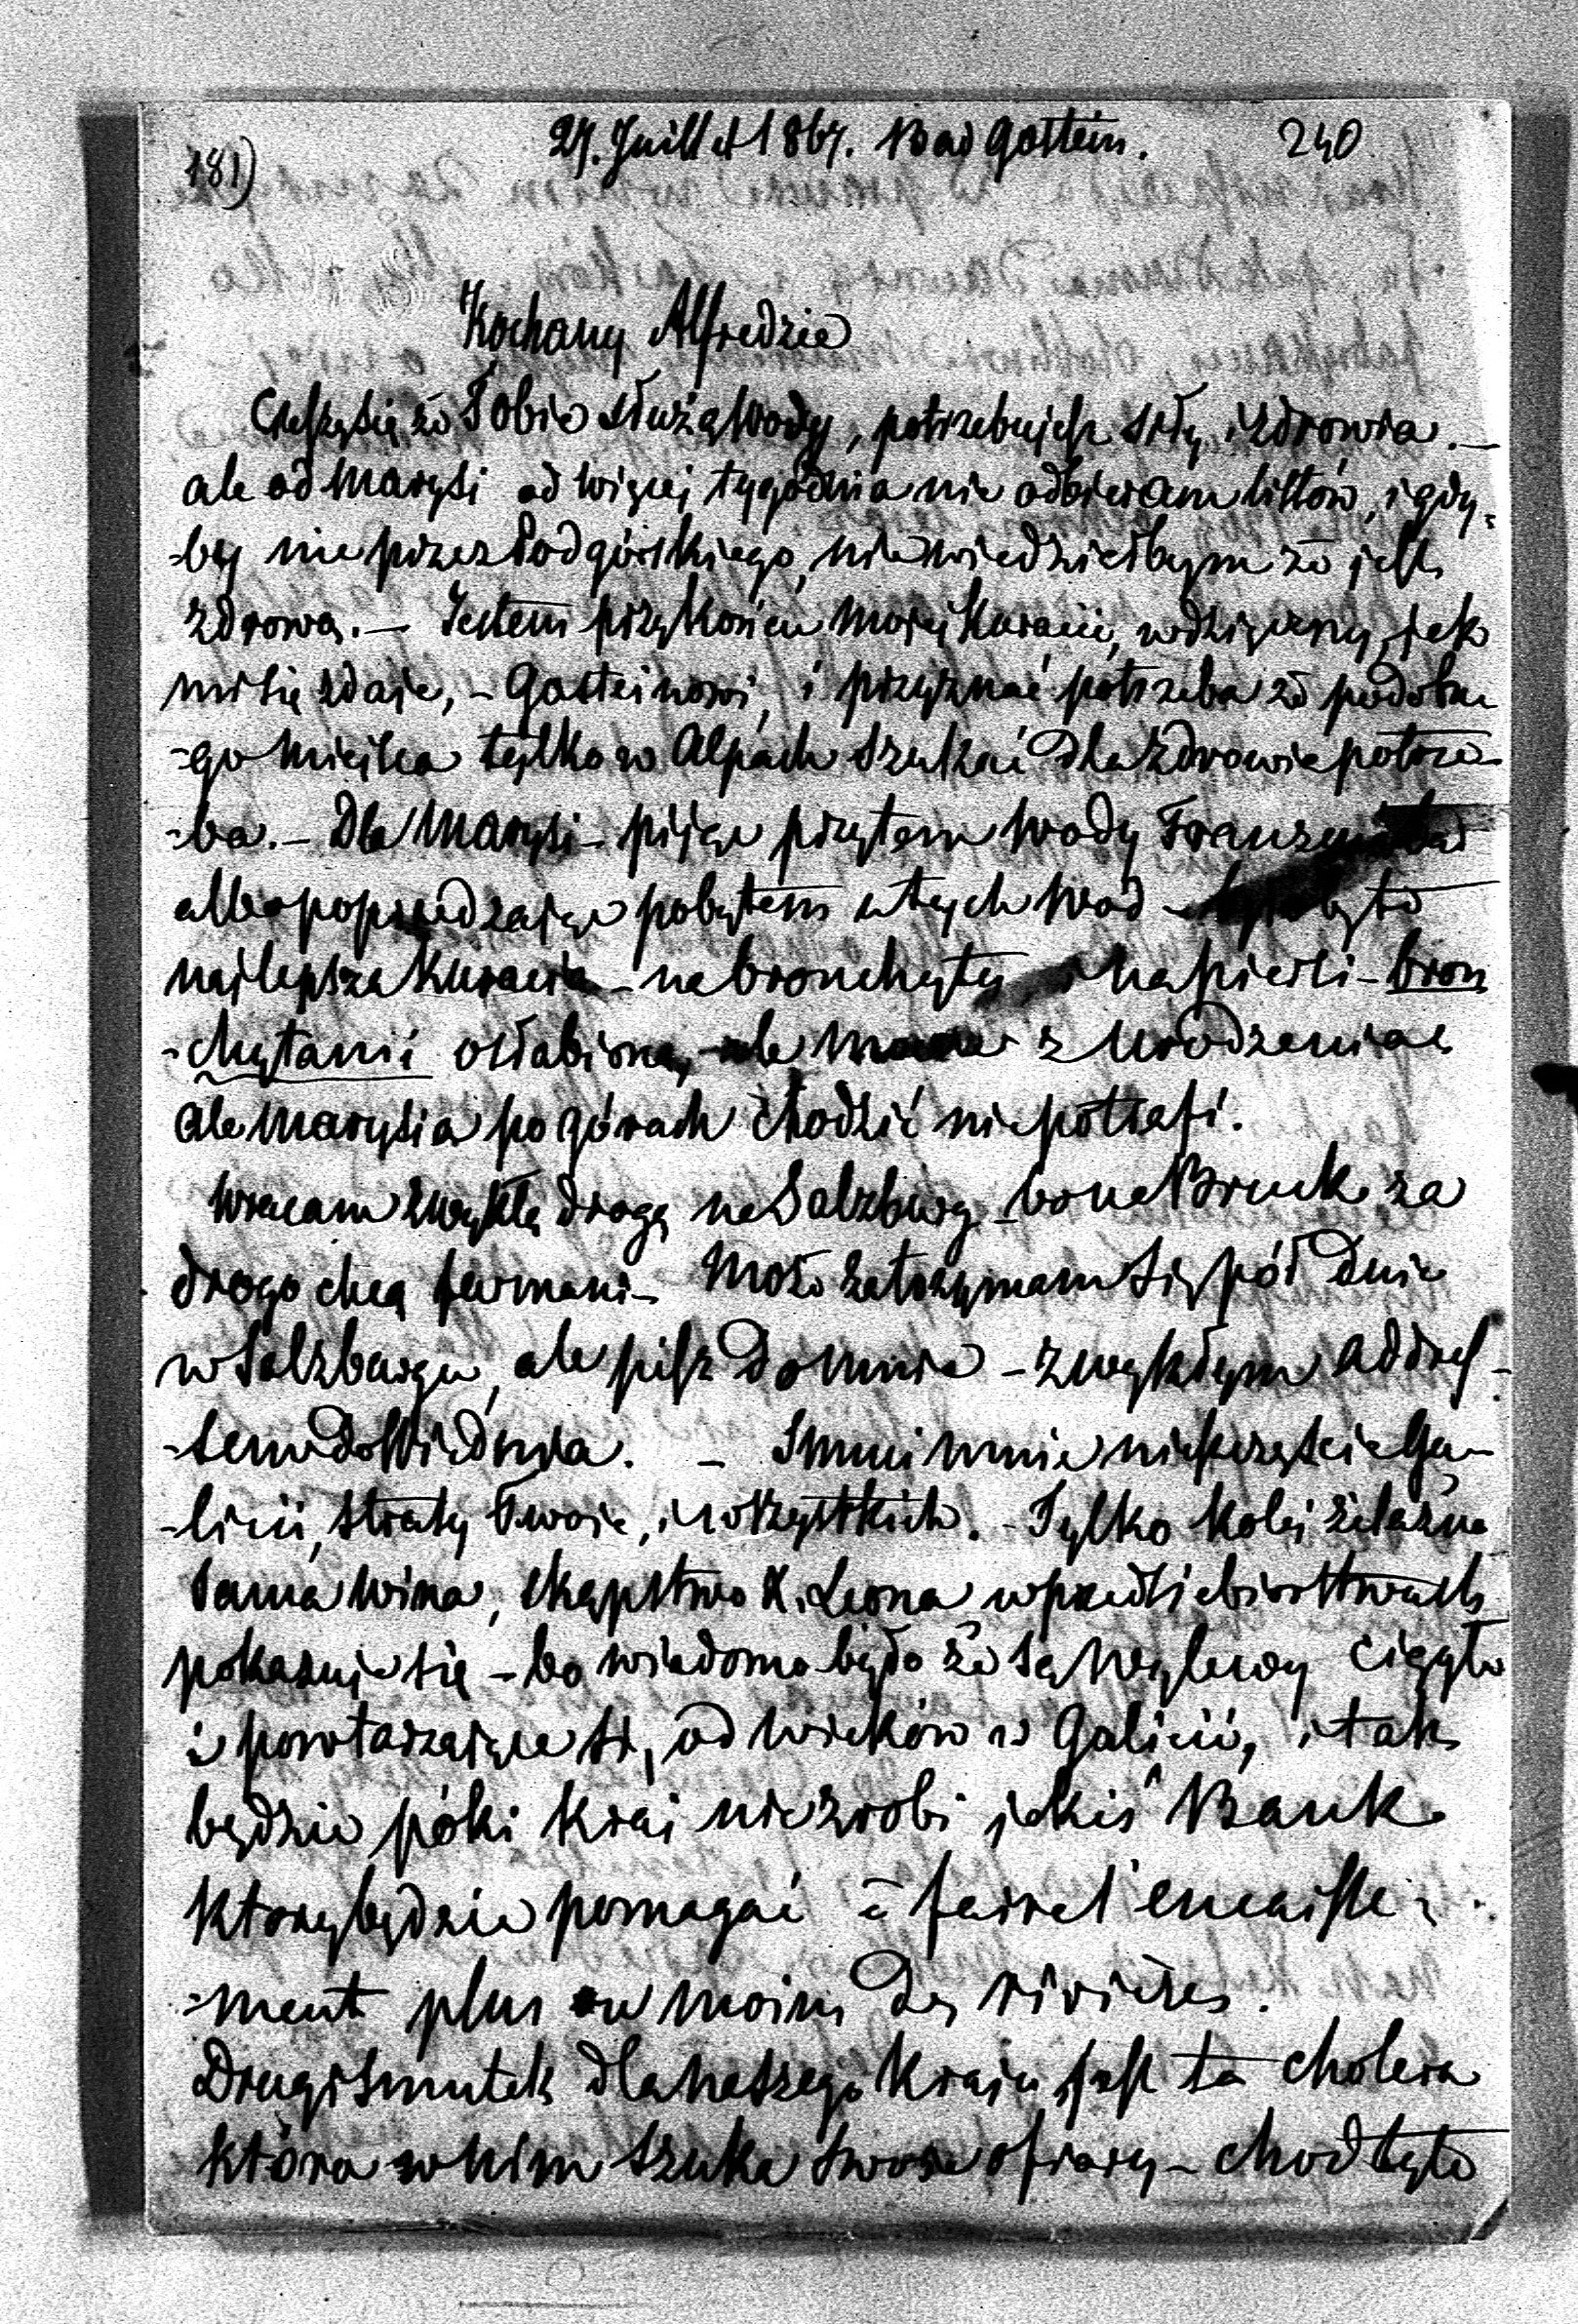 181)
27. Juillet 1867. Bad Gastein.
240
Kochany Alfredzie
Cieszę się że Tobie służą Wody, potrzebujesz siły i zdrowia. —
ale od Marysi od więcej tygodnia nie odbieram listów, i gdy-
-by nie przez Podgórskiego, nie wiedziełbym że jest
zdrową. — Jestem przy końcu mojej Kuracii, wdzięczny, jak
mi się zdaje, - Gasteinowi, i przyznać potrzeba że podobne
-go miejsca tylko w Alpach szukać dla zdrowia potrze-
-ba. - Dla Marysi - pijąc przytem wody Franzensbad
albo poprzedzając pobytem u tych wod - byłoby to
najlepsza Kuracia - na bronchyty i na piersi - bron
-chytami osłabione, z urodzenia
ale Marysia po górach chodzić nie potrafi.
Wracam zwykłą drogą na Salzburg - bo na Bruck za
drogo chcą furmani - Może zatrzymam się pół dnia
w Salzburgu, ale pisz do mnie - zwykłym addres-
-sem do Widnia. - Smuci mnie nieszczęście Ga-
-licii, straty Twoje, i wszystkich. - Tylko kolej żelazna
sama wina, skąpstwo X. Leona w przedsiebiorstwach
pokazuje się - bo wiadomo było że są wylewy ciągłe
i powtarzające się, od wieków w Galicii, i tak
będzie póki kraj nie zrobi jakiś Bank
ktory będzie pomagać à faire l'encaisse-
-ment plus ou moins des rivières.
Drugi smutek dla naszego Kraju jest ta cholera
która w nim szuka swoje ofiary - chodź by to